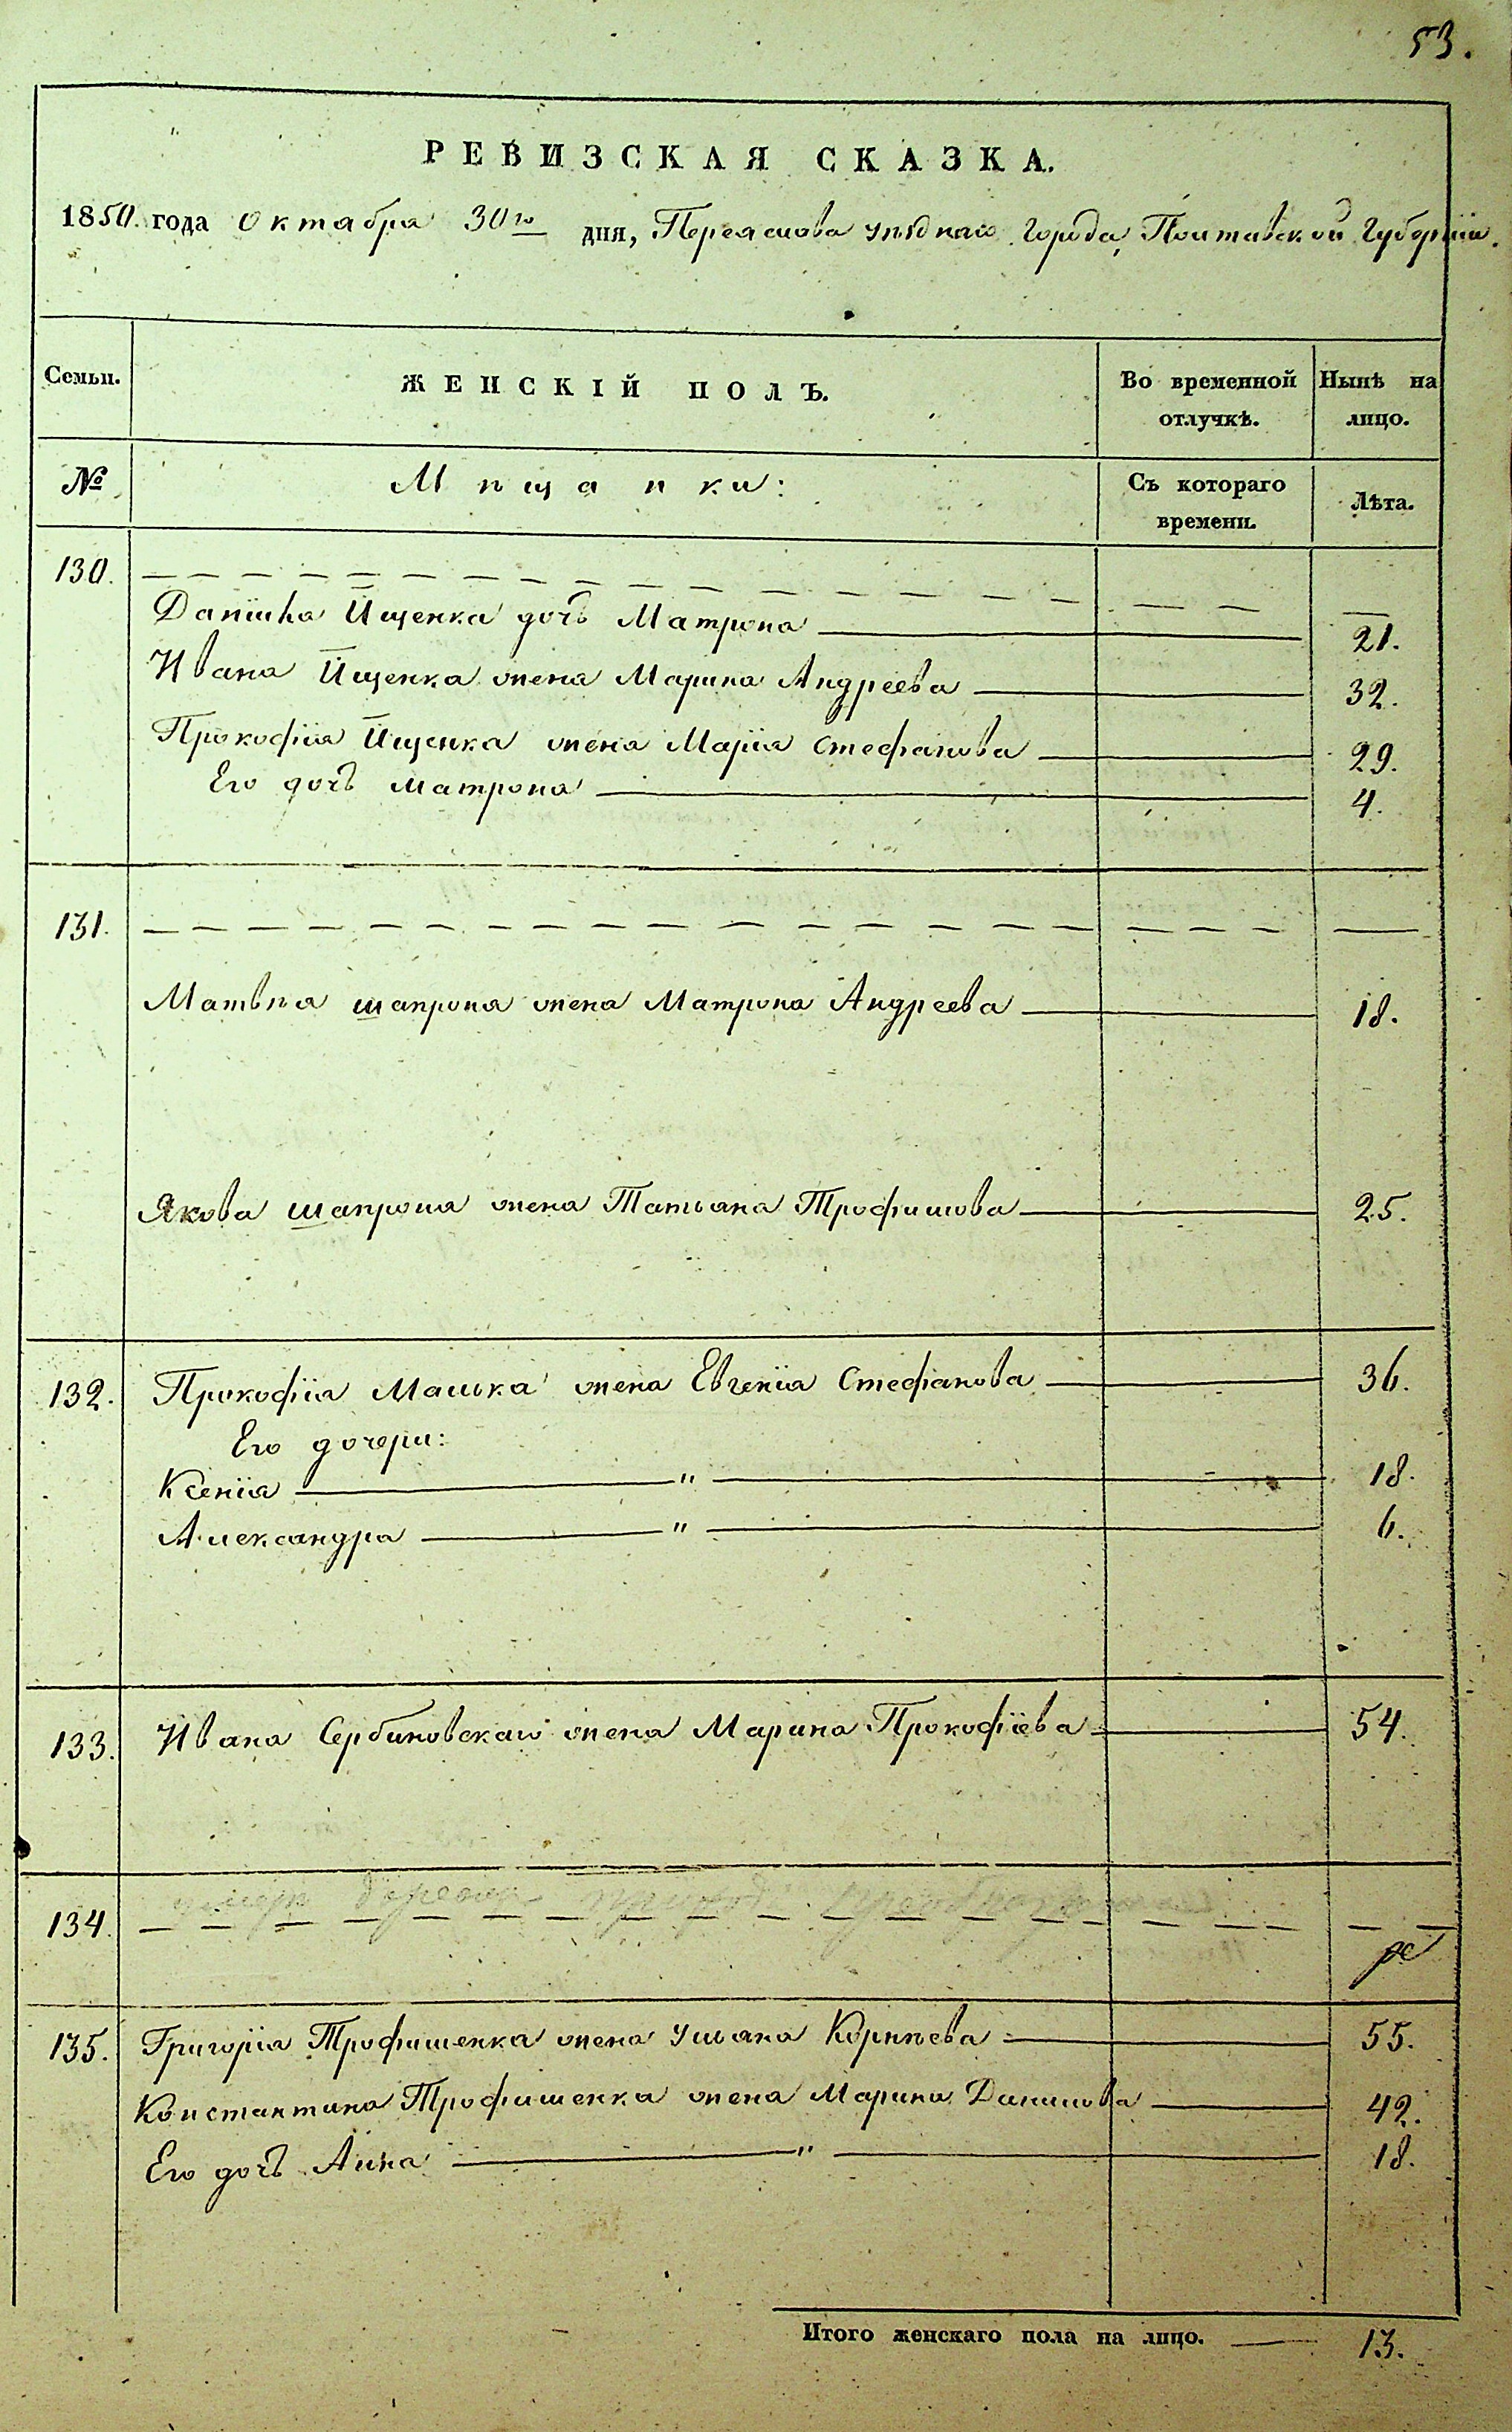 53.
РЕВИЗСКАЯ СКАЗКА.
1850. года Октября 30го дня, Переяслова уѣзднаго Города, Полтавской Губерніи.
Семьи. ЖЕНСКІЙ ПОЛЪ. Во временной отлучкѣ. Нынѣ на лицо.
№ Мѣщанки: Съ котораго времени. Лѣта.
130. — — — — — — — — — — — — — — — — — —
Даніила Ищенка дочь Матрона — 21.
Ивана Ищенка жена Марина Андреева — 32.
Прокофія Ищенка жена Марія Стефанова — 29.
Его дочь Матрона — 4.
131. — — — — — — — — — — — — — — — — — —
Матвѣя Шапрона жена Матрона Андреева — 18.
Якова Шапрона жена Татьяна Трофимова — 25.
132. Прокофія Малька жена Евгенія Стефанова — 36.
Его дочери:
Ксенія — " — 18.
Александра — " — 6.
133. Ивана Сербиновскаго жена Марина Прокофіева — 54.
134. — — — — — — — — — — — — — — — — — —
135. Григорія Трофименка жена Ульяна Корнѣева — 55.
Константина Трофименка жена Марина Данилова — 42.
Его дочь Анна — " — 18.
Итого женскаго пола на лицо. — 13.